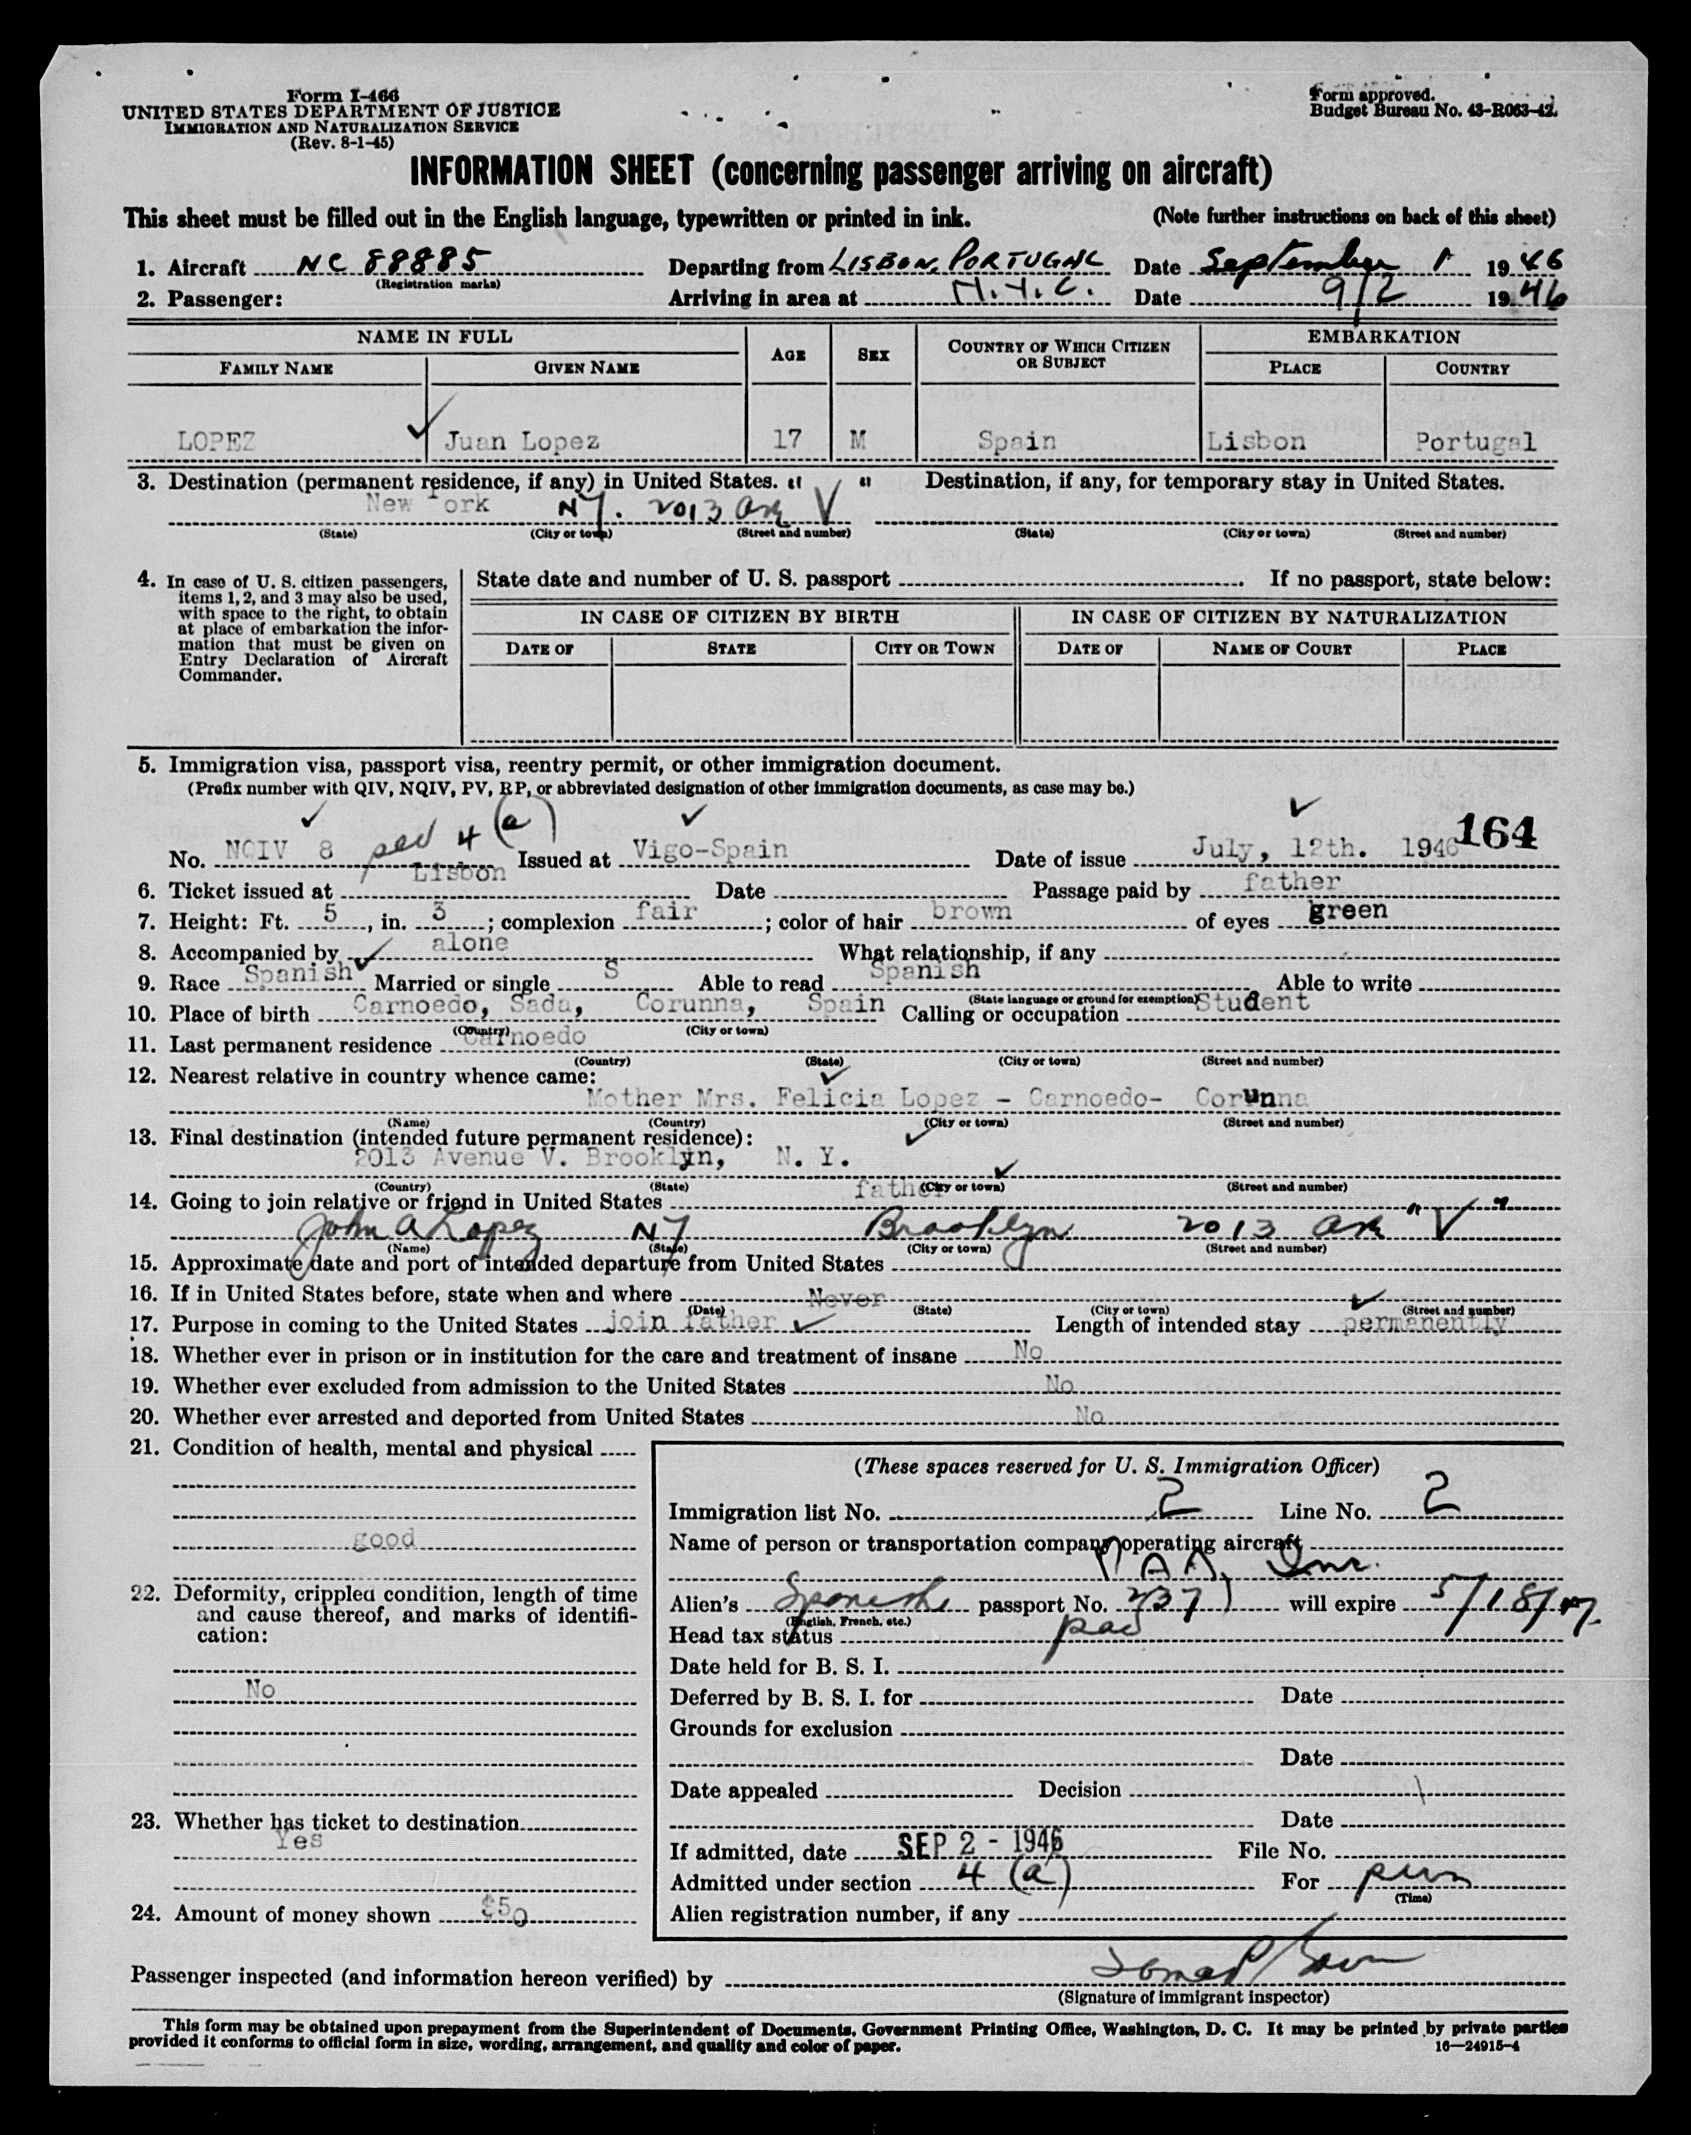 Form I-466
UNITED STATES DEPARTMENT OF JUSTICE
IMMIGRATION AND NATURALIZATION SERVICE
(Rev. 8-1-45)
Form approved.
Budget Bureau No. 43-R063-42.
INFORMATION SHEET (concerning passenger arriving on aircraft)
This sheet must be filled out in the English language, typewritten or printed in ink. (Note further instructions on back of this sheet)
1. Aircraft NC 88885 Departing from LISBON, PORTUGAL Date September 1 1946
(Registration marks)
2. Passenger: Arriving in area at N.Y.C. Date 9/2 1946
NAME IN FULL AGE SEX COUNTRY OF WHICH CITIZEN OR SUBJECT EMBARKATION
FAMILY NAME GIVEN NAME PLACE COUNTRY
LOPEZ Juan Lopez 17 M Spain Lisbon Portugal
3. Destination (permanent residence, if any) in United States. " " Destination, if any, for temporary stay in United States.
New York NY. 2013 Ave V
(State) (City or town) (Street and number) (State) (City or town) (Street and number)
4. In case of U. S. citizen passengers, items 1, 2, and 3 may also be used, with space to the right, to obtain at place of embarkation the information that must be given on Entry Declaration of Aircraft Commander.
State date and number of U. S. passport . If no passport, state below:
IN CASE OF CITIZEN BY BIRTH IN CASE OF CITIZEN BY NATURALIZATION
DATE OF STATE CITY OR TOWN DATE OF NAME OF COURT PLACE
5. Immigration visa, passport visa, reentry permit, or other immigration document.
(Prefix number with QIV, NQIV, PV, RP, or abbreviated designation of other immigration documents, as case may be.)
164
No. NQIV 8 4 (a) Issued at Vigo-Spain Date of issue July, 12th. 1946
6. Ticket issued at Lisbon Date Passage paid by father
7. Height: Ft. 5, in. 3; complexion fair; color of hair brown of eyes green
8. Accompanied by alone What relationship, if any
9. Race Spanish Married or single S Able to read Spanish Able to write
(State language or ground for exemption)
10. Place of birth Carnoedo, Sada, Corunna, Spain Calling or occupation Student
(Country) (City or town)
11. Last permanent residence Carnoedo
(Country) (State) (City or town) (Street and number)
12. Nearest relative in country whence came:
Mother Mrs. Felicia Lopez - Carnoedo- Corunna
(Name) (Country) (City or town) (Street and number)
13. Final destination (intended future permanent residence):
2013 Avenue V. Brooklyn, N. Y.
(Country) (State) (City or town) (Street and number)
14. Going to join relative or friend in United States father
John A Lopez NY Brooklyn 2013 Ave "V"
(Name) (State) (City or town) (Street and number)
15. Approximate date and port of intended departure from United States
16. If in United States before, state when and where Never
(Date) (State) (City or town) (Street and number)
17. Purpose in coming to the United States join father Length of intended stay permanently
18. Whether ever in prison or in institution for the care and treatment of insane No
19. Whether ever excluded from admission to the United States No
20. Whether ever arrested and deported from United States No
21. Condition of health, mental and physical
good
22. Deformity, crippled condition, length of time and cause thereof, and marks of identification:
No
23. Whether has ticket to destination
Yes
24. Amount of money shown $50
(These spaces reserved for U. S. Immigration Officer)
Immigration list No. 2 Line No. 2
Name of person or transportation company operating aircraft
PAA, Inc.
Alien's Spanish passport No. 237 will expire 5/18/47.
(English, French, etc.)
Head tax status
Date held for B. S. I.
Deferred by B. S. I. for Date
Grounds for exclusion
Date
Date appealed Decision
Date
If admitted, date SEP 2 - 1946 File No.
Admitted under section 4 (a) For perm
(Time)
Alien registration number, if any
Passenger inspected (and information hereon verified) by
(Signature of immigrant inspector)
This form may be obtained upon prepayment from the Superintendent of Documents, Government Printing Office, Washington, D. C. It may be printed by private parties
provided it conforms to official form in size, wording, arrangement, and quality and color of paper.
16—24915-4